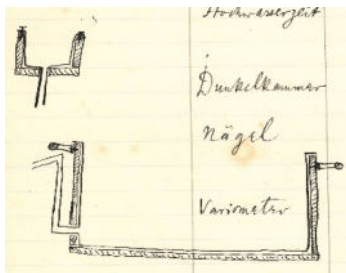 Hochwasserzeit
Dunkelkammer
Nägel
Variometer